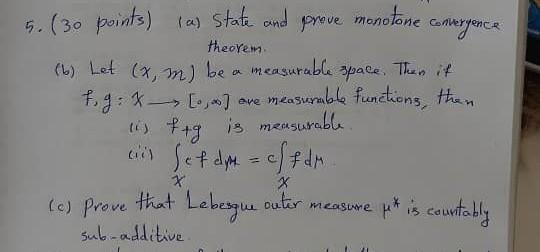 5. (30 points) (a) State and prove monotone convergence
theorem.
(b) Let (X, m) be a measurable space. Then if
f, g : X → [0, ∞] are measurable functions, then
(i) f+g is measurable.
(ii) ∫_X c f dμ = c ∫_X f dμ.
(c) Prove that Lebesgue outer measure μ* is countably
sub-additive.